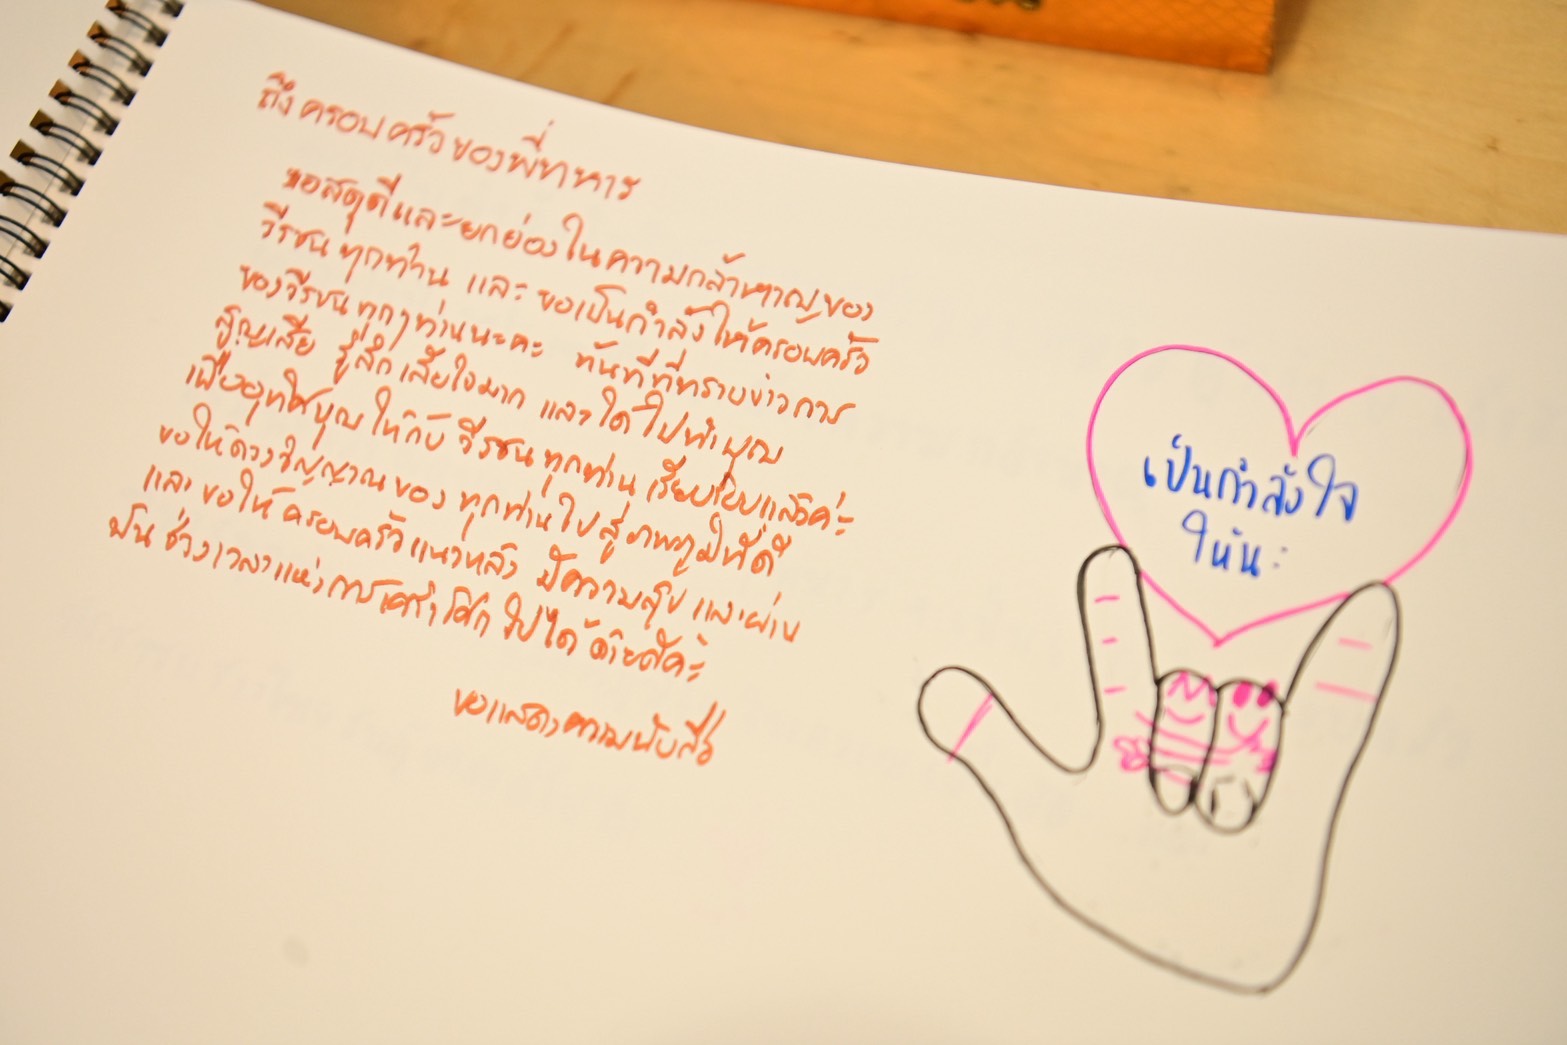 ถึงครอบครัวของพี่ทหาร
ขอสดุดีและยกย่องในความกล้าหาญของ
วีรชนทุกท่าน และ ขอเป็นกำลังให้ครอบครัว
ของวีรชนทุกๆท่านนะคะ ทันทีที่ทราบข่าวการ
สูญเสีย รู้สึกเสียใจมาก และได้ไปทำบุญ
เพื่ออุทิศบุญให้กับ วีรชนทุกท่าน เรียบร้อยแล้วค่ะ
ขอให้ดวงวิญญาณของ ทุกท่านไปสู่ภพภูมิที่ดี
และ ขอให้ครอบครัวแนวหลัง มีความสุข และผ่าน
พ้น ช่วงเวลาแห่งการเศร้าโศก ไปได้ด้วยดีค่ะ
ขอแสดงความนับถือ
เป็นกำลังใจ
ให้นะ